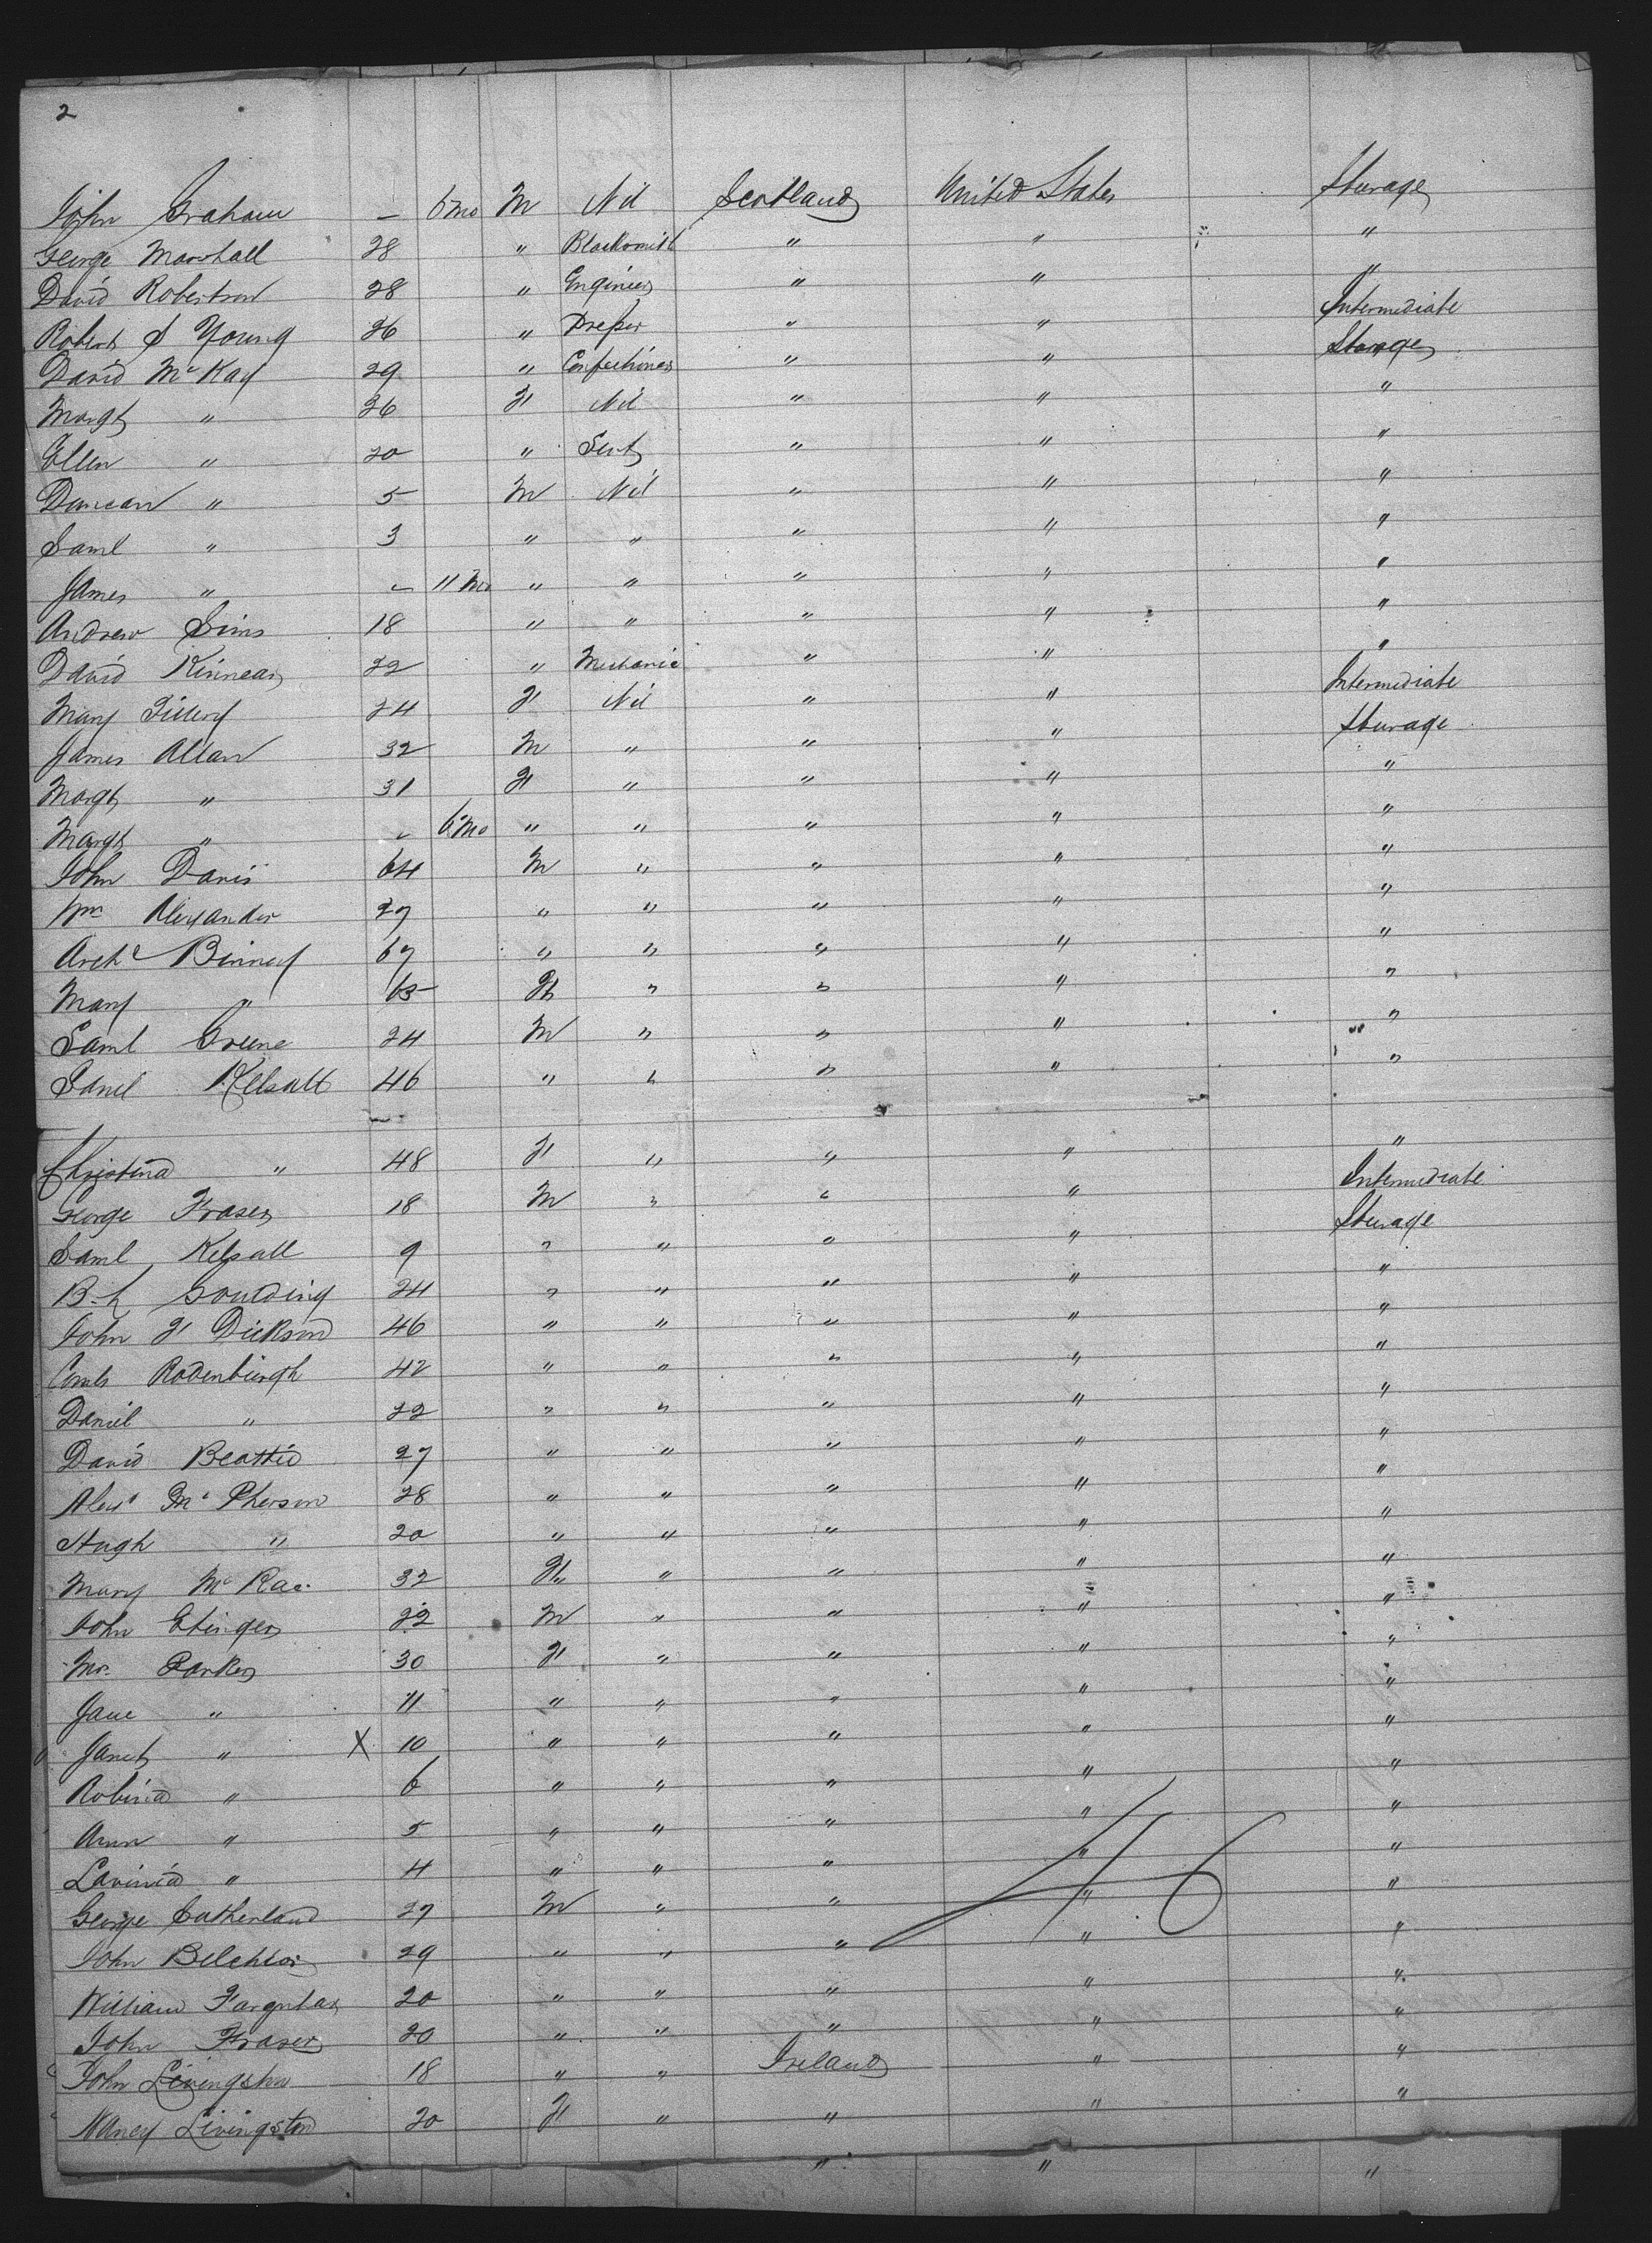 2
John Graham — 6 mo M Nil Scotland United States Steerage
George Marshall 28 " Blacksmith " " "
David Robertson 28 " Engineer " " "
Robert S Young 26 " " " Intermediate
David McKay 29 " Confectioner " " Steerage
Margt " 26 F Nil " " "
Ellen " 20 " Servt " " "
Duncan " 5 M Nil " " "
Saml " 3 " " " " "
James " - 11 Mo " " " " "
Andrew Sims 18 " " " " "
David Kinnear 22 " Mechanic " " "
Mary 24 F Nil " " Intermediate
James Allan 32 M " " " Steerage
Margt " 31 F " " " "
Margt " - 6 Mo " " " " "
John Davis 64 M " " " "
Wm Alexander 27 " " " " "
Archd Binney 67 " " " " "
Mary " 65 F " " " "
Saml Greene 24 M " " " "
Saml Kelsall 46 " " " " "
Christina " 48 F " " " "
George Fraser 18 M " " " Intermediate
Saml Kelsall 9 " " " " Steerage
B. h Goulding 24 " " " " "
John F Dickson 46 " " " " "
Corls Rodenburgh 42 " " " " "
Daniel " 22 " " " " "
David Beattie 27 " " " " "
Alexr McPherson 28 " " " " "
Hugh " 20 " " " " "
Mary McRae 32 F " " " "
John Etinger 22 M " " " "
Mrs Parker 30 F " " " "
Jane " 11 " " " " "
Janet " X 10 " " " " "
Robina " 6 " " " " "
Ann " 5 " " " " "
Lavinia " 4 " " " " "
George Sutherland 27 M " " " "
John Belchior 29 " " " " "
William Farquhar 20 " " " " "
John Fraser 20 " " " " "
John Livingston 18 " " Ireland " "
Nancy Livingston 20 F " " " "
46
" " "